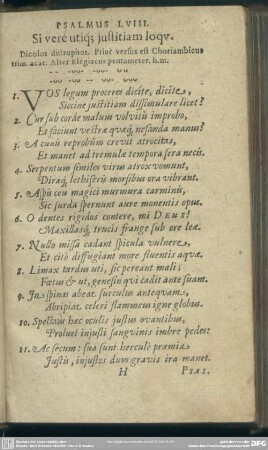 PSALMUS LVIII.
Si vere utiq; justitiam loqv.
Dicolos distrophos. Prior versus est Choriambicus
trim. acat. Alter Elegiacus pentameter, h.m.
1. VOS legum proceres dicite, dicite,
Siccine justitiam dissimulare licet?
2. Cur sub corde malum volvitis improbo,
Et faciunt vestræ quæq; nefanda manus?
3. A cunis reprobûm crevit atrocitas,
Et manet ad tremulæ tempora sera necis.
4. Serpentum similes virus atrox vomunt,
Diraq; lethiferis morsibus ora vibrant.
5. Aspis ceu magici murmura carminis,
Sic surda spernunt aure monentis opus.
6. O dentes rigidos contere, mi DEUS!
Maxillasq; trucis frange sub ore leæ.
7. Nullo missa cadant spicula vulnere,
Et citò diffugiant more fluentis aqvæ.
8. Limax tardus uti, sic pereant mali;
Fœtus & ut, genesin qvi cadit ante suam.
9. In spinas abeat surculus anteqvam,
Abripiat celeri flammeus igne globus.
10. Spectabis hæc oculis justus ovantibus,
Proluet injusti sangvinis imbre pedes:
11. Ac secum: sua sunt herculè præmia
Justis, injustos dum gravis ira manet.
H PSAL.